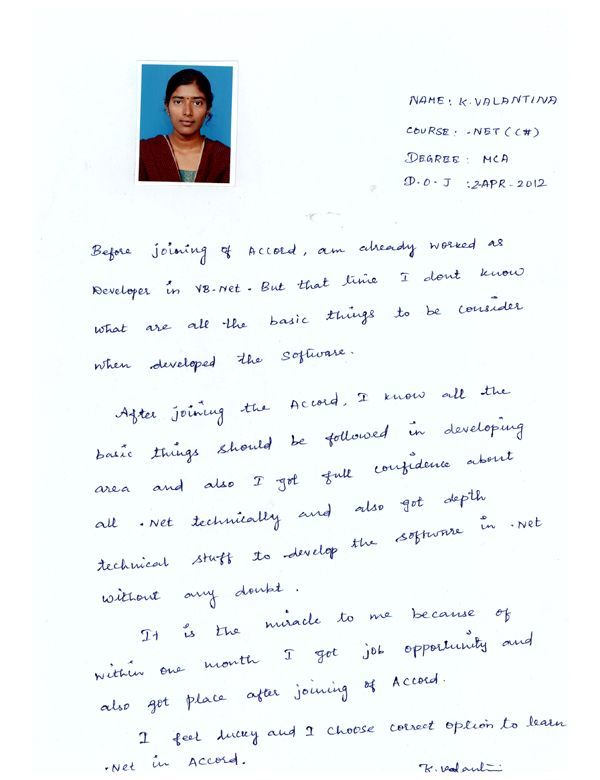 NAME: K.VALANTINA
COURSE: .NET (C#)
DEGREE: MCA
D.O.J :2APR-2012
Before joining of Accord, am already worked as
Developer in VB.Net. But that time I dont know
what are all the basic things to be consider
when developed the software.
After joining the Accord, I know all the
basic things should be followed in developing
area and also I got full confidence about
all .Net technically and also got depth
technical stuff to develop the software in .Net
without any doubt.
It is the miracle to me because of
within one month I got job opportunity and
also got place after joining of Accord.
I feel lucky and I choose correct option to learn
.Net in Accord.
K.Valanti